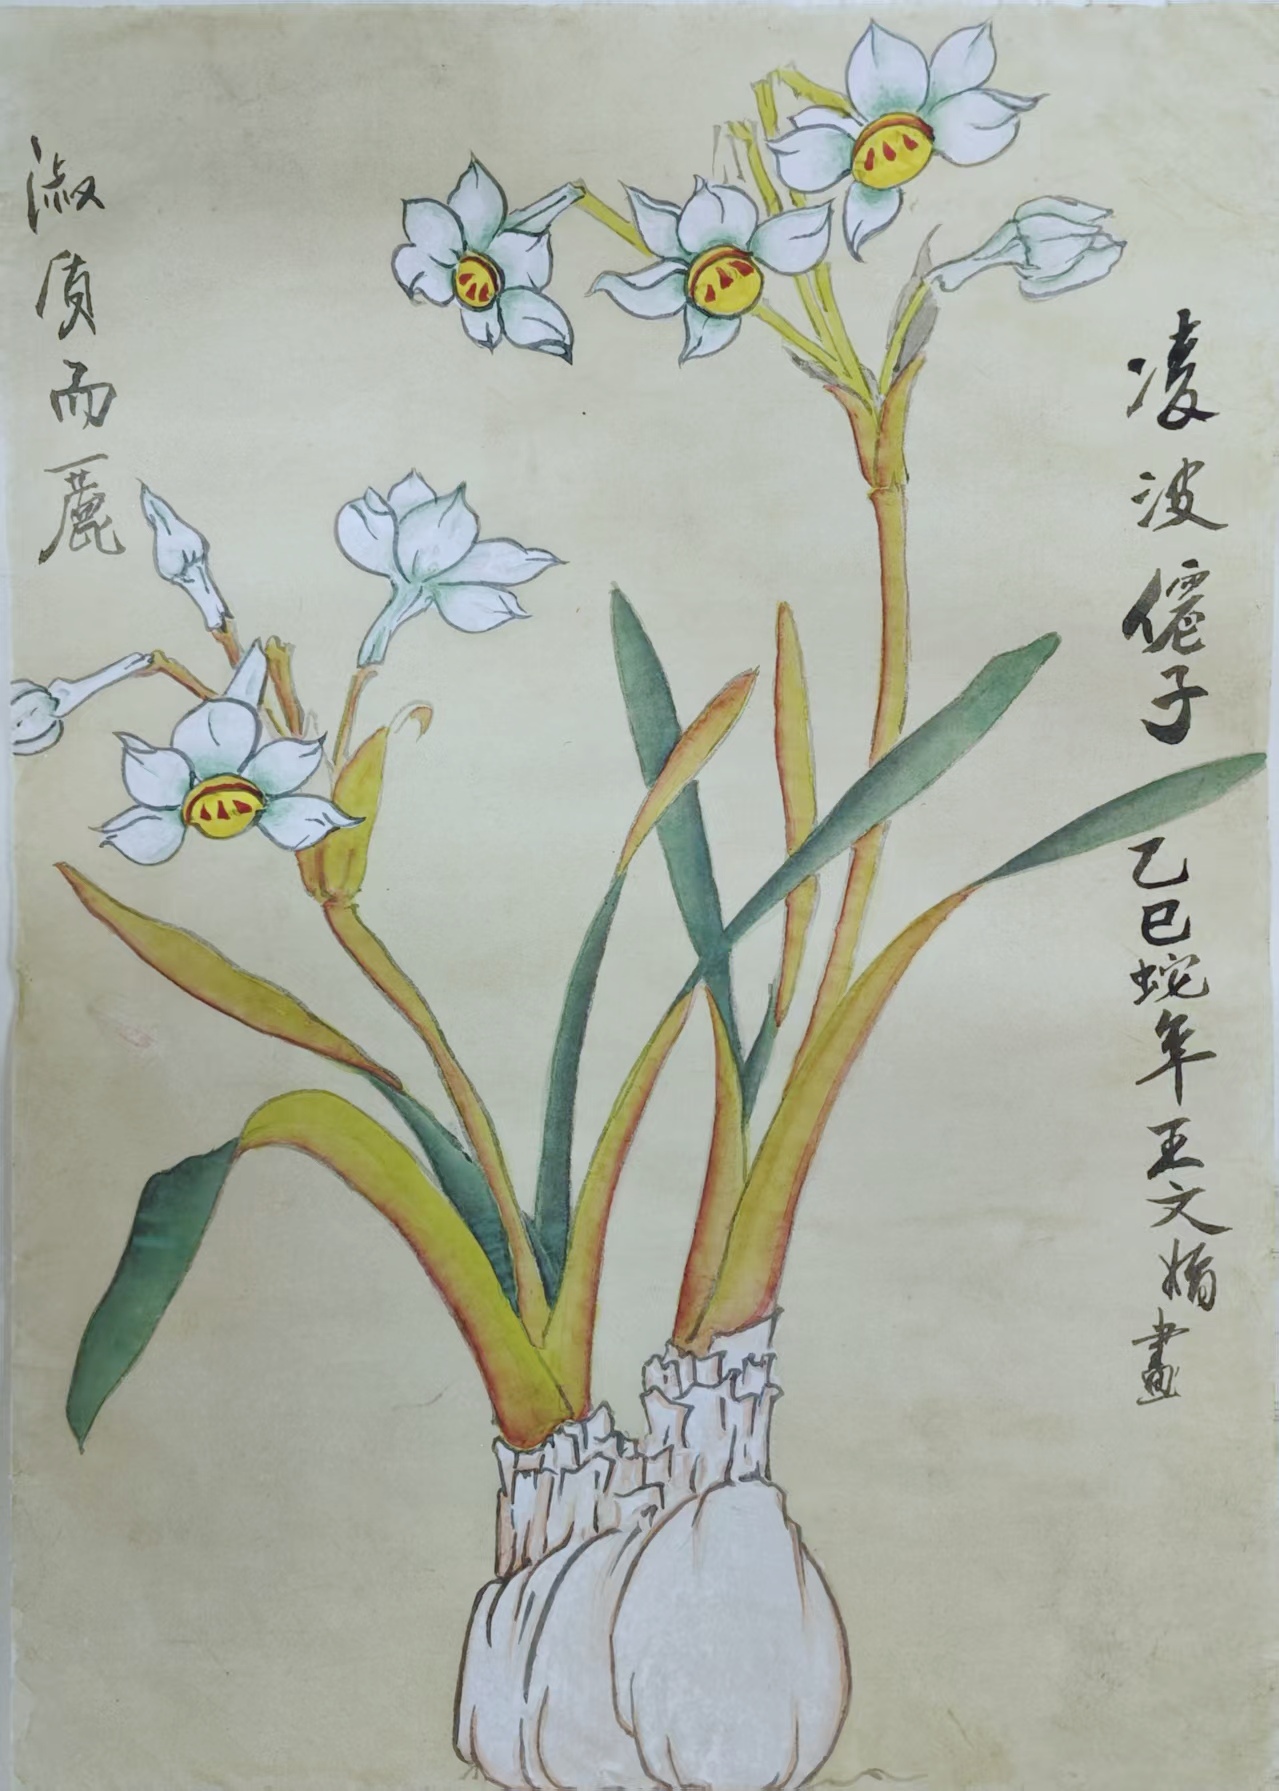 凌波僊子 乙巳蛇年王文娟畫
淑质而麗